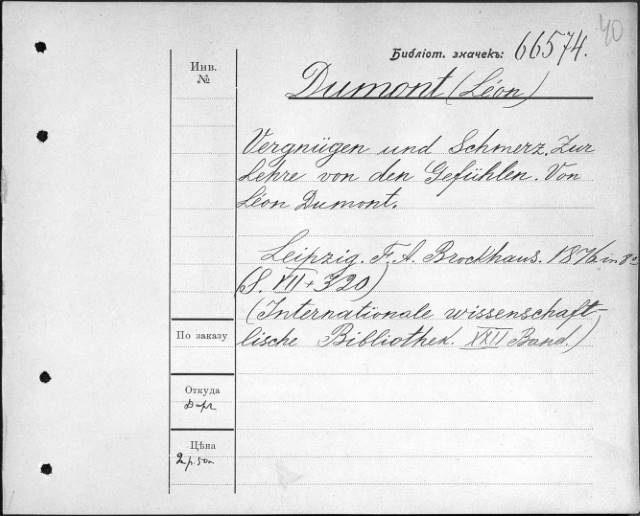 40
Библіот. значекъ: 66574.
Инв.
№
Dumont (Léon)
Vergnügen und Schmerz. Zur
Lehre von den Gefühlen. Von
Léon Dumont.
Leipzig. F. A. Brockhaus. 1876 in 8º
(S. VII + 320)
(Internationale wissenschaft-
lische Bibliothek. XXII Band.)
По заказу
Откуда
Цѣна
2 р. 50 к